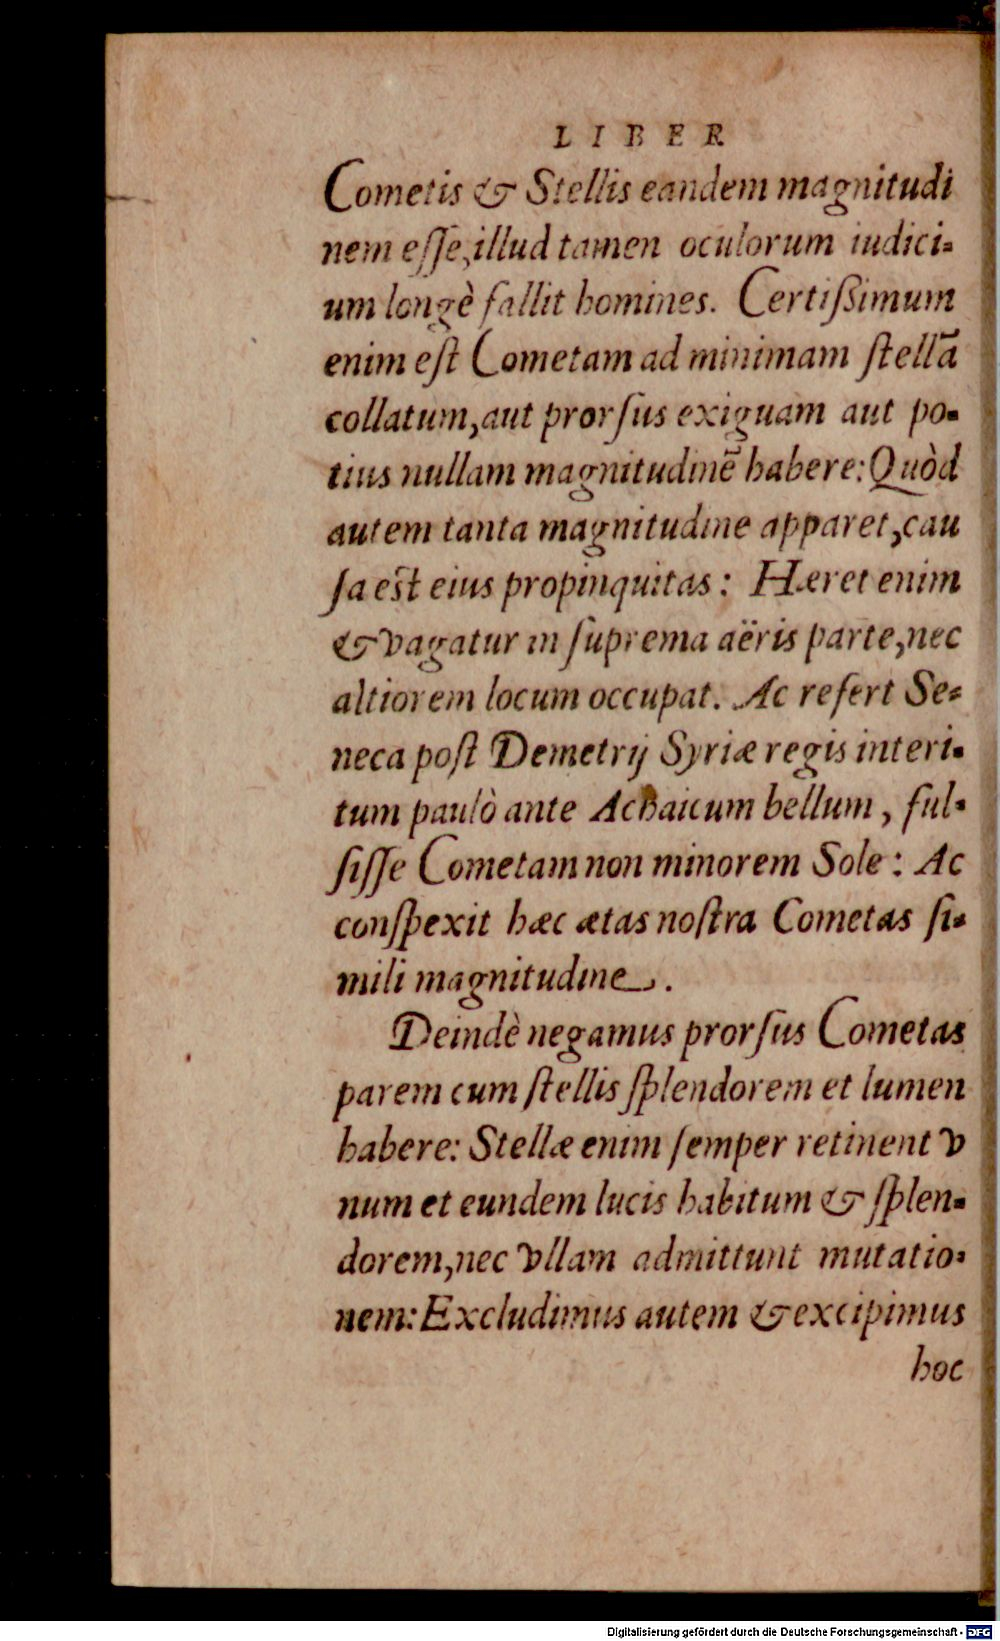 LIBER
Cometis & Stellis eandem magnitudi
nem eſſe, illud tamen oculorum iudici-
um longè fallit homines. Certiſſimum
enim eſt Cometam ad minimam ſtellā
collatum, aut prorſus exiguam aut po-
tius nullam magnitudinē habere: Quòd
autem tanta magnitudine apparet, cau
ſa eſt eius propinquitas: Hæret enim
& vagatur in ſuprema aëris parte, nec
altiorem locum occupat. Ac refert Se-
neca poſt Demetrij Syriæ regis interi-
tum paulò ante Achaicum bellum, ful-
ſiſſe Cometam non minorem Sole: Ac
conſpexit hæc ætas noſtra Cometas ſi-
mili magnitudine.
Deindè negamus prorſus Cometas
parem cum ſtellis ſplendorem et lumen
habere: Stellæ enim ſemper retinent v
num et eundem lucis habitum & ſplen-
dorem, nec vllam admittunt mutatio-
nem: Excludimus autem & excipimus
hoc
Digitalisierung gefördert durch die Deutsche Forschungsgemeinschaft - DFG